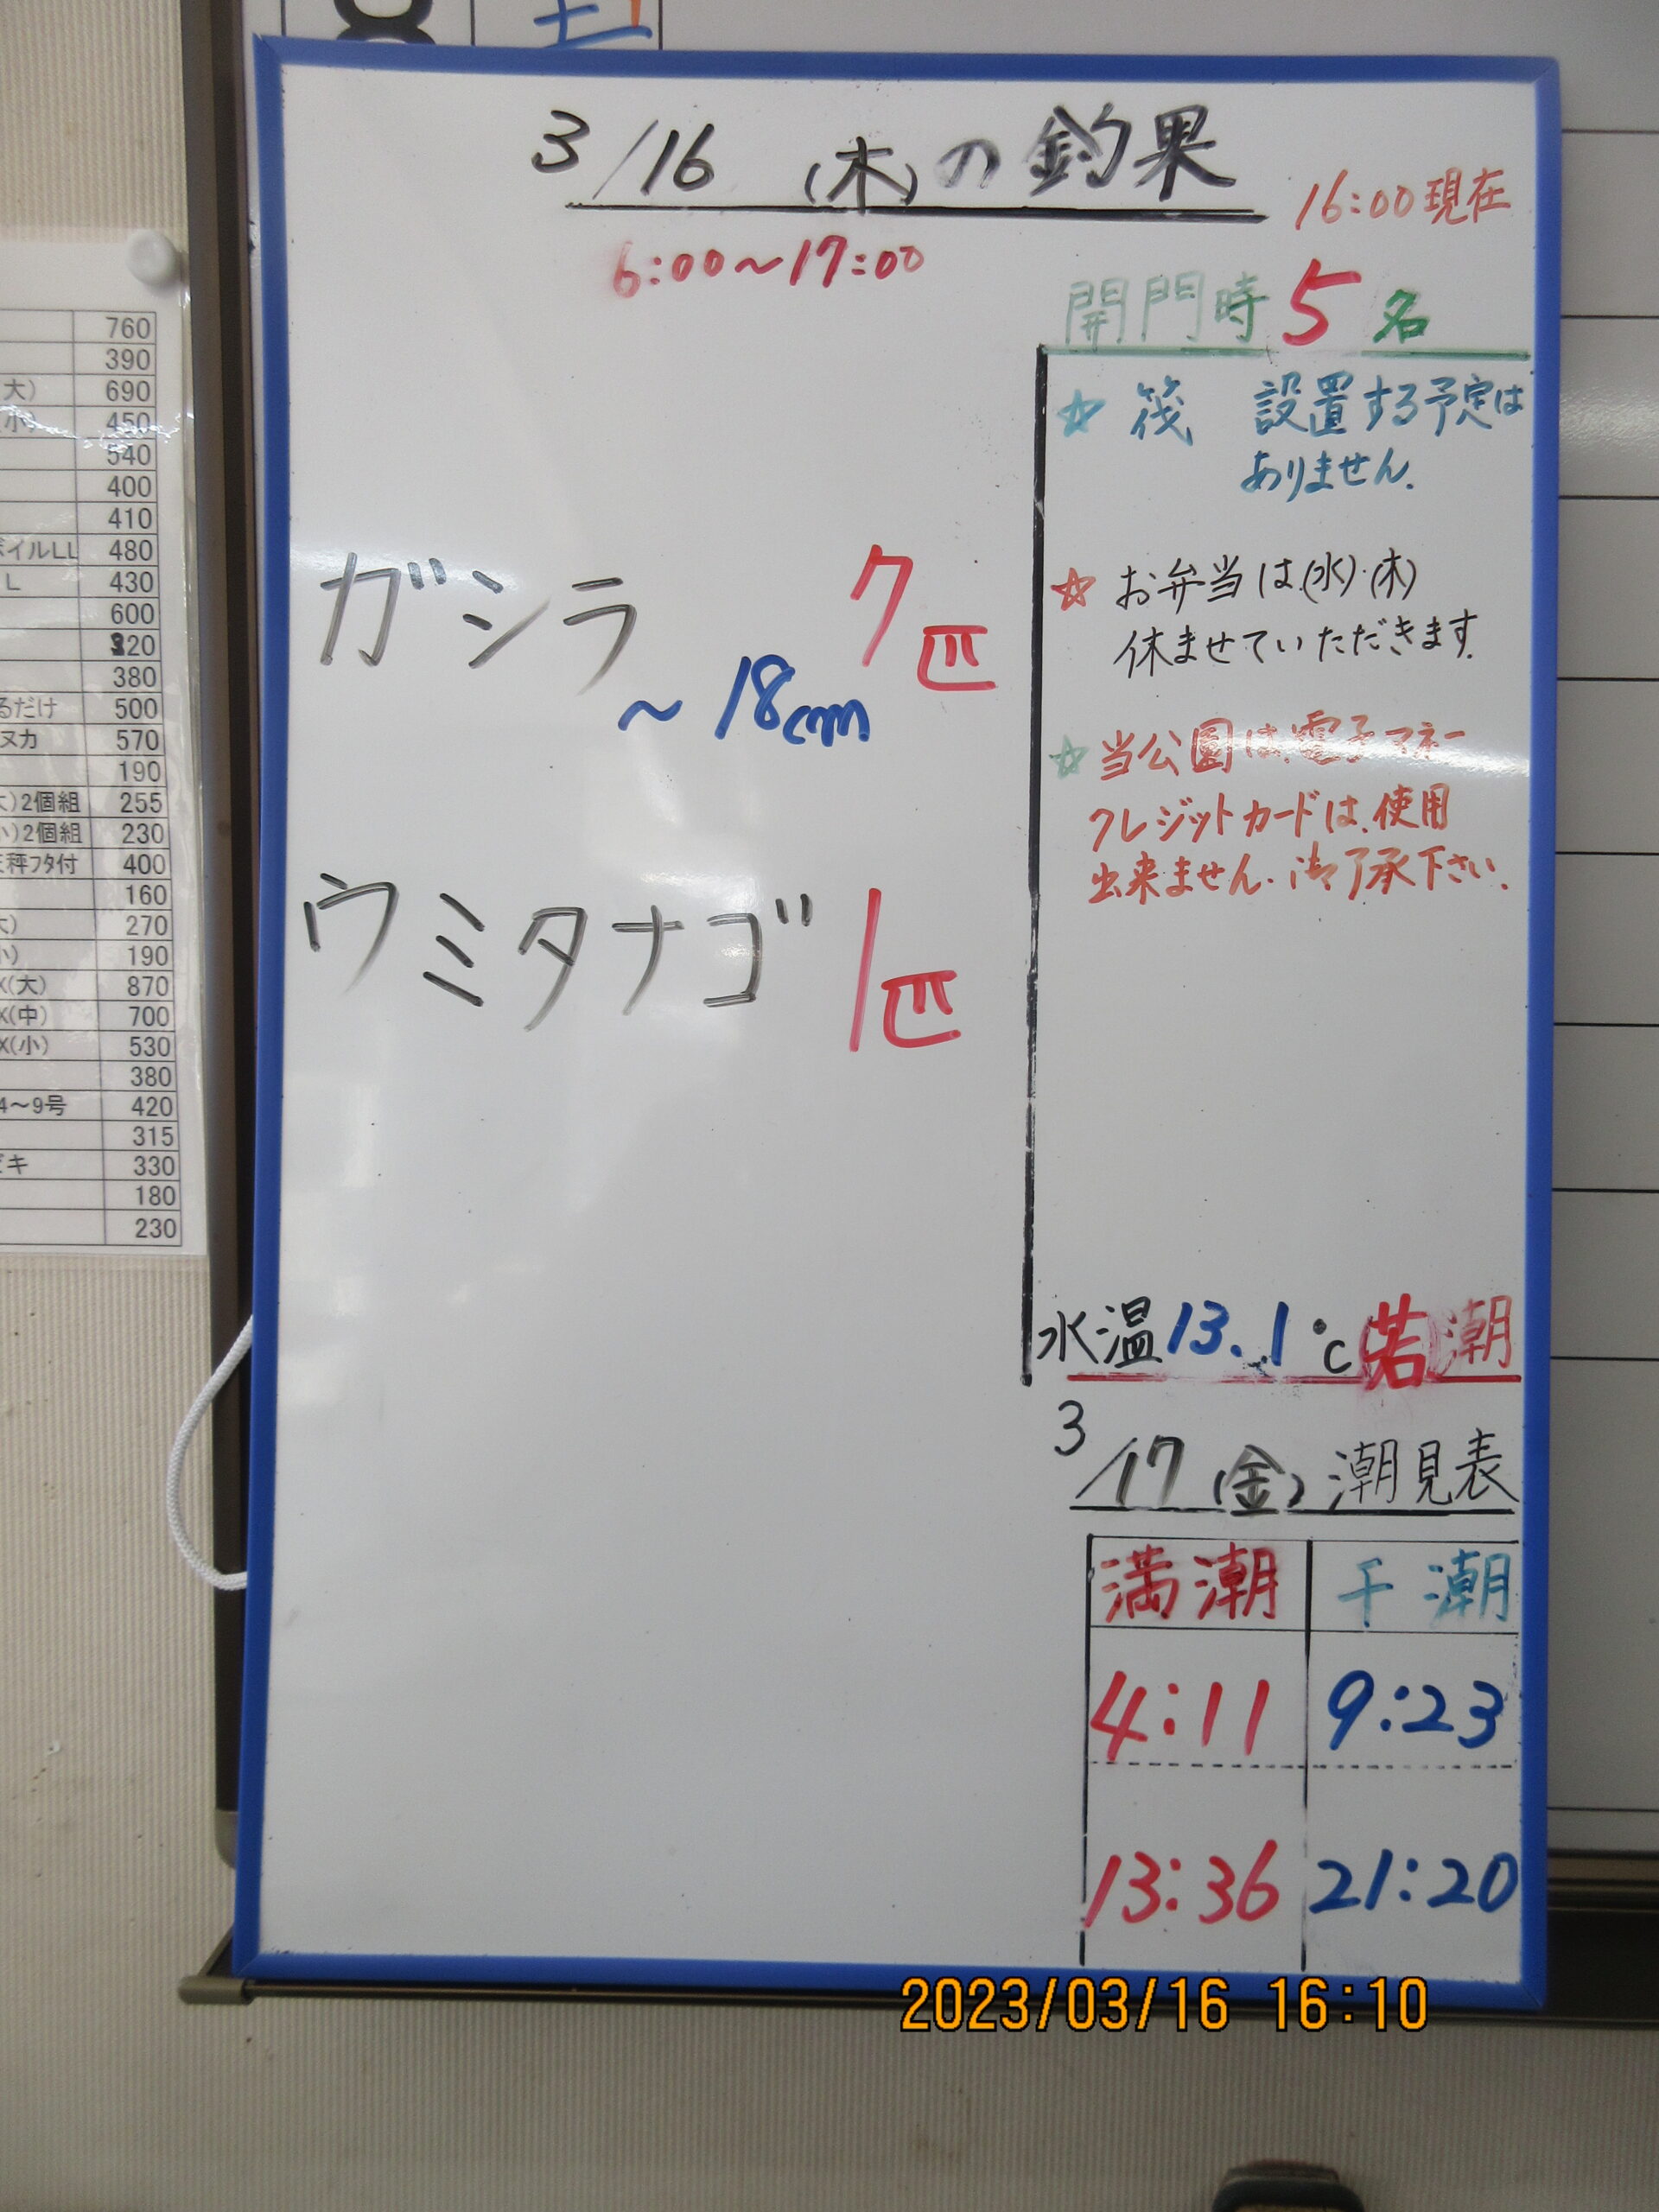 土
760
390
大) 690
小) 450
540
400
410
ボイルLL 480
L 430
600
320
380
るだけ 500
ヌカ 570
190
大)2個組 255
小)2個組 230
天秤フタ付 400
160
大) 270
小) 190
X(大) 870
X(中) 700
X(小) 530
380
4〜9号 420
315
ビキ 330
180
230
3/16 (木)の釣果
16:00現在
6:00〜17:00
開門時 5名
☆ 筏 設置する予定は
ありません.
☆ お弁当は(水)・(木)
休ませていただきます.
☆ 当公園は、電子マネー
クレジットカードは、使用
出来ません. 御了承下さい.
ガシラ 7匹
〜18cm
ウミタナゴ 1匹
水温 13.1℃ (若)潮
3/17 (金) 潮見表
満潮 干潮
4:11 9:23
13:36 21:20
2023/03/16 16:10